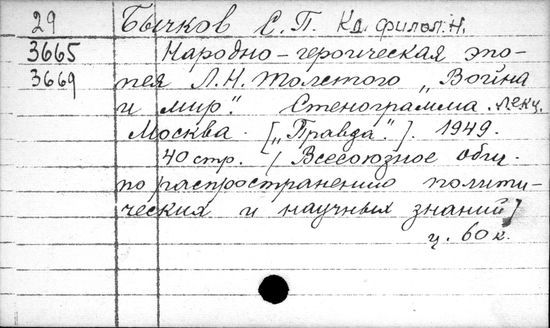 29 Бычков С. П. Кд. филол. н.
3665 Народно-героическая эпо-
3669 пея Л.Н. Толстого „Война
и мир“. Стенограмма лекц.
Москва. [„Правда“]. 1949.
40 стр. / Всесоюзное общ.
по распространению полити-
ческих и научных знаний /
ц. 60 к.